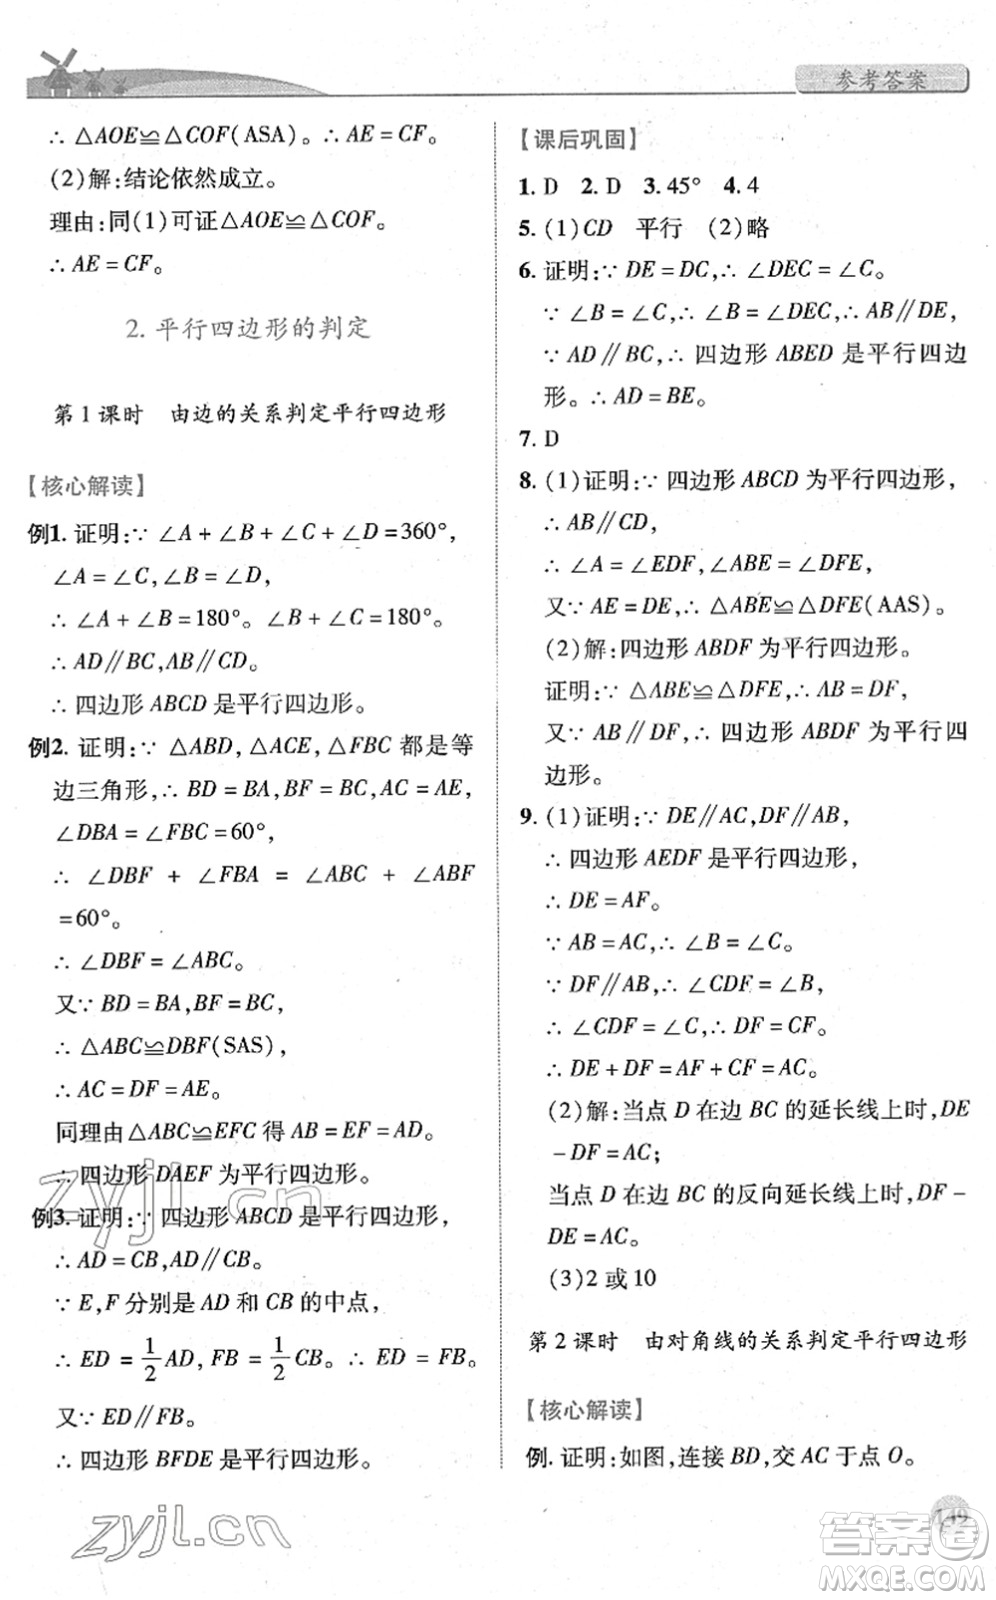 参考答案
∴ △AOE≌△COF(ASA)。∴ AE = CF。
(2)解:结论依然成立。
理由:同(1)可证△AOE≌△COF。
∴ AE = CF。
2. 平行四边形的判定
第 1 课时　由边的关系判定平行四边形
【核心解读】
例1. 证明:∵ ∠A + ∠B + ∠C + ∠D = 360°,
∠A = ∠C,∠B = ∠D,
∴ ∠A + ∠B = 180°。∠B + ∠C = 180°。
∴ AD∥BC,AB∥CD。
∴ 四边形 ABCD 是平行四边形。
例2. 证明:∵ △ABD,△ACE,△FBC 都是等
边三角形,∴ BD = BA,BF = BC,AC = AE,
∠DBA = ∠FBC = 60°,
∴ ∠DBF + ∠FBA = ∠ABC + ∠ABF
= 60°。
∴ ∠DBF = ∠ABC。
又∵ BD = BA,BF = BC,
∴ △ABC≌DBF(SAS),
∴ AC = DF = AE。
同理由△ABC≌EFC 得 AB = EF = AD。
∴ 四边形 DAEF 为平行四边形。
例3. 证明:∵ 四边形 ABCD 是平行四边形,
∴ AD = CB,AD∥CB。
∵ E,F 分别是 AD 和 CB 的中点,
∴ ED = 1/2 AD, FB = 1/2 CB。∴ ED = FB。
又∵ ED∥FB。
∴ 四边形 BFDE 是平行四边形。
【课后巩固】
1. D　2. D　3. 45°　4. 4
5. (1)CD　平行　(2)略
6. 证明:∵ DE = DC,∴ ∠DEC = ∠C。
∵ ∠B = ∠C,∴ ∠B = ∠DEC,∴ AB∥DE,
∵ AD∥BC,∴ 四边形 ABED 是平行四边
形。∴ AD = BE。
7. D
8. (1)证明:∵ 四边形 ABCD 为平行四边形,
∴ AB∥CD,
∴ ∠A = ∠EDF,∠ABE = ∠DFE,
又∵ AE = DE,∴ △ABE≌△DFE(AAS)。
(2)解:四边形 ABDF 为平行四边形。
证明:∵ △ABE≌△DFE,∴ AB = DF,
又∵ AB∥DF,∴ 四边形 ABDF 为平行四
边形。
9. (1)证明:∵ DE∥AC,DF∥AB,
∴ 四边形 AEDF 是平行四边形,
∴ DE = AF。
∵ AB = AC,∴ ∠B = ∠C。
∵ DF∥AB,∴ ∠CDF = ∠B,
∴ ∠CDF = ∠C,∴ DF = CF。
∴ DE + DF = AF + CF = AC。
(2)解:当点 D 在边 BC 的延长线上时,DE
- DF = AC;
当点 D 在边 BC 的反向延长线上时,DF -
DE = AC。
(3)2 或 10
第 2 课时　由对角线的关系判定平行四边形
【核心解读】
例. 证明:如图,连接 BD,交 AC 于点 O。
149
zyjl.cn
zyjl.cn
答案圈
MXQE.COM